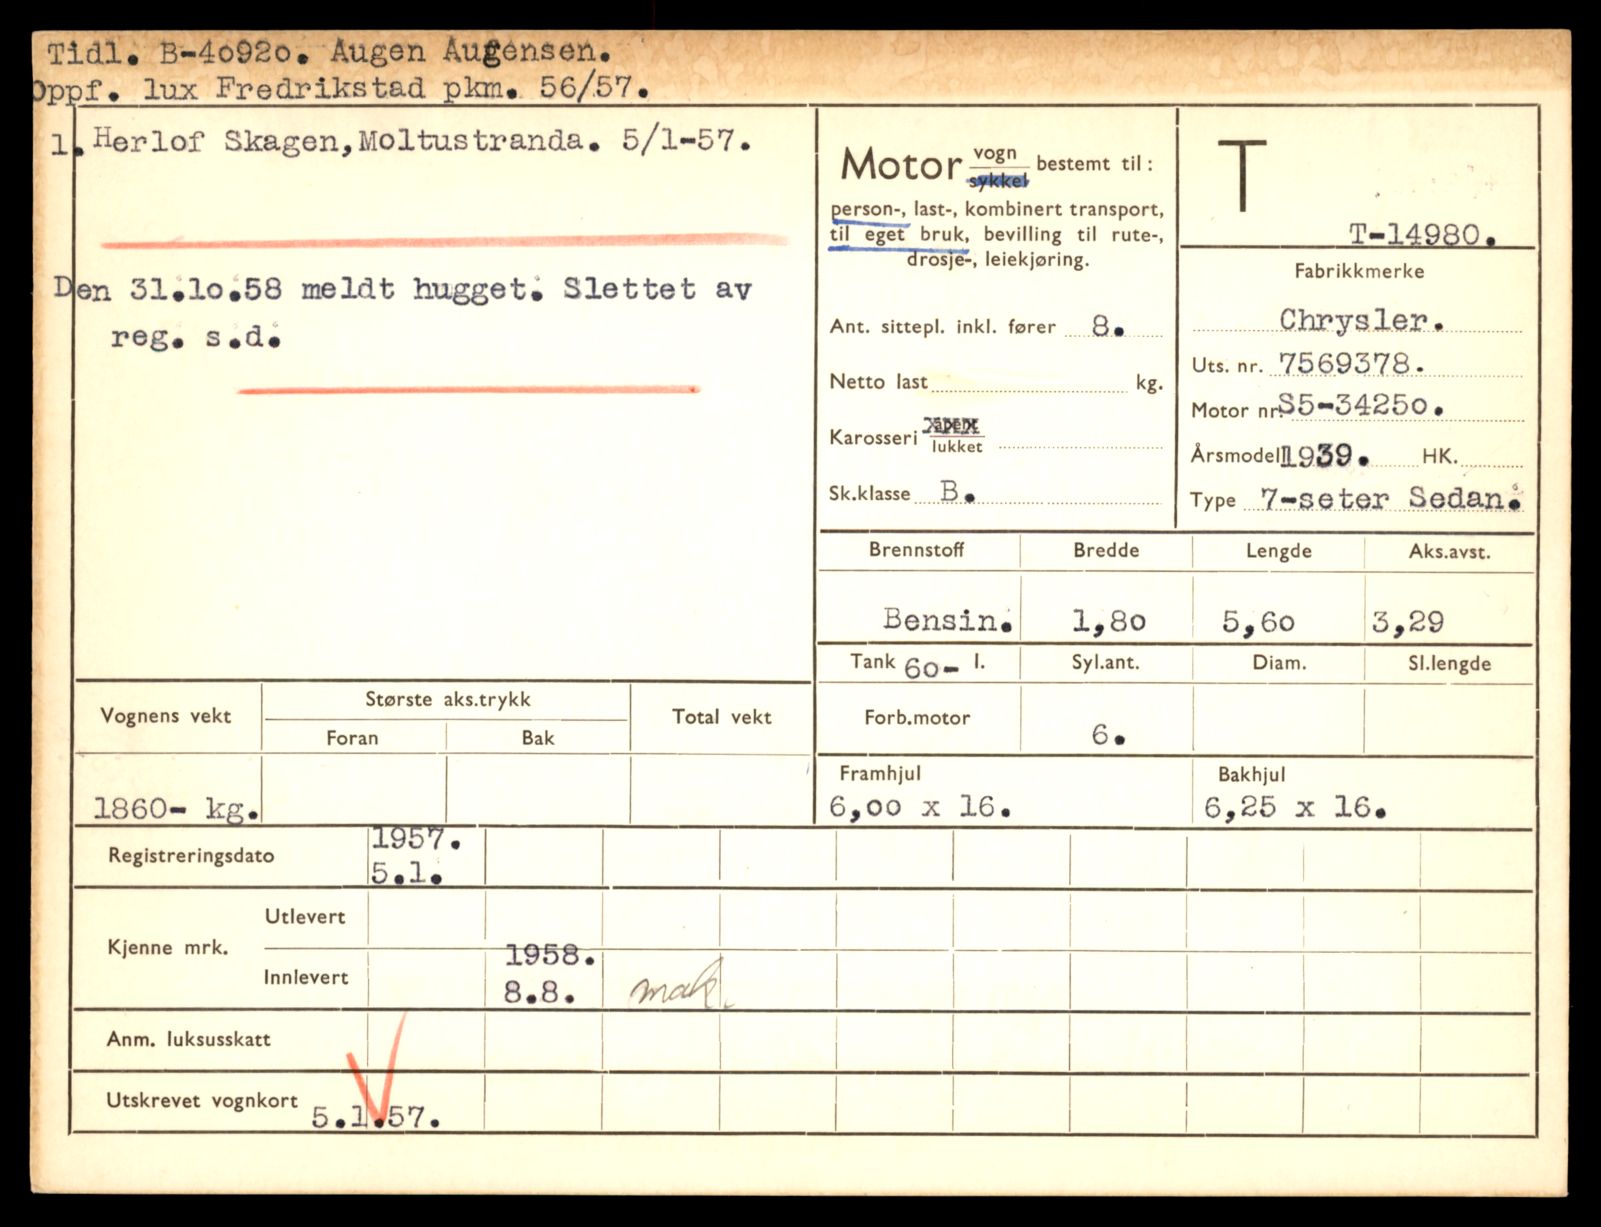 Tidl. B-40920. Augen Augensen.
Oppf. lux Fredrikstad pkm. 56/57.
1. Herlof Skagen, Moltustranda. 5/1-57.
Den 31.10.58 meldt hugget. Slettet av
reg. s.d.
Motor vogn
sykkel bestemt til:
person-, last-, kombinert transport,
til eget bruk, bevilling til rute-,
drosje-, leiekjøring.
Ant. sittepl. inkl. fører 8.
Netto last kg.
Karosseri åpent
lukket
Sk.klasse B.
T
T-14980.
Fabrikkmerke
Chrysler.
Uts. nr. 7569378.
Motor nr. S5-34250.
Årsmodell 1939. HK.
Type 7-seter Sedan.
Brennstoff Bredde Lengde Aks.avst.
Bensin. 1,80 5,60 3,29
Tank 60- l. Syl.ant. Diam. Sl.lengde
Forb.motor 6.
Framhjul Bakhjul
6,00 x 16. 6,25 x 16.
Vognens vekt Største aks.trykk Total vekt
Foran Bak
1860- kg.
Registreringsdato 1957.
5.1.
Kjenne mrk. Utlevert
Innlevert 1958.
8.8. mak.
Anm. luksusskatt
Utskrevet vognkort 5.1.57.